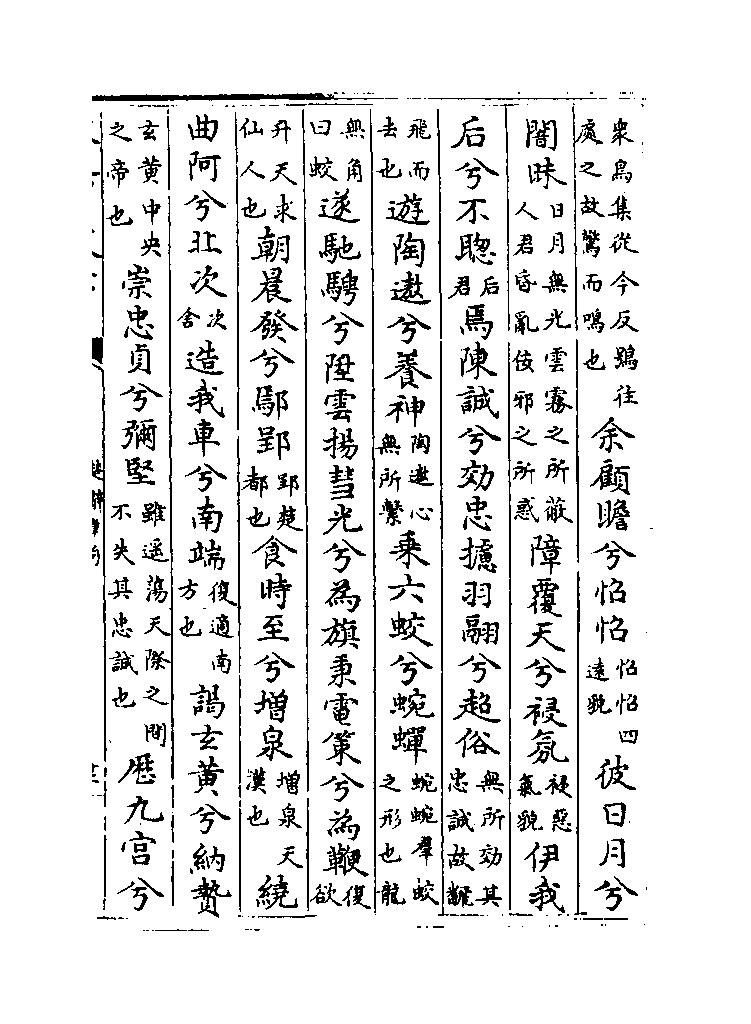 衆鳥集從今反鶚往處之故驚而鳴也余顧瞻兮怊怊怊怊四遠貌彼日月兮
闇昧日月無光雲霧之所蔽人君昏亂佞邪之所惑障覆天兮祲氛祲惡氣貌伊我
后兮不聰后君焉陳誠兮効忠攄羽翮兮超俗無所効其忠誠故翻
飛而去也遊陶遨兮養神陶遨心無所繫乗六蛟兮蜿蟬蜿蜿羣蛟之形也龍
無角曰蛟遂馳騁兮陞雲揚彗光兮為旗秉電策兮為鞭復欲
升天求仙人也朝晨發兮鄢郢郢楚都也食時至兮增泉增泉天漢也繞
曲阿兮北次次舍造我車兮南端復適南方也謁玄黄兮納贄
玄黄中央之帝也崇忠貞兮彌堅雖遥蕩天際之間不失其忠誠也歴九宫兮